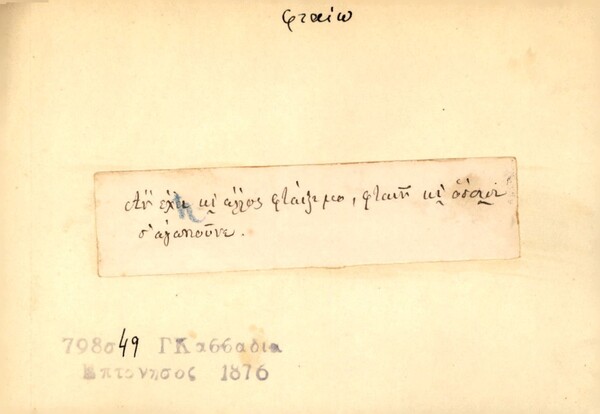 φταίω
Ἂν ἔχῃ κι̬ ἄλλος φταίξιμο, φταιῖν κι̬ ὅσοι
σ' ἀγαποῦνε.
798σ49 ΓΚαββαδια
Επτανησος 1876